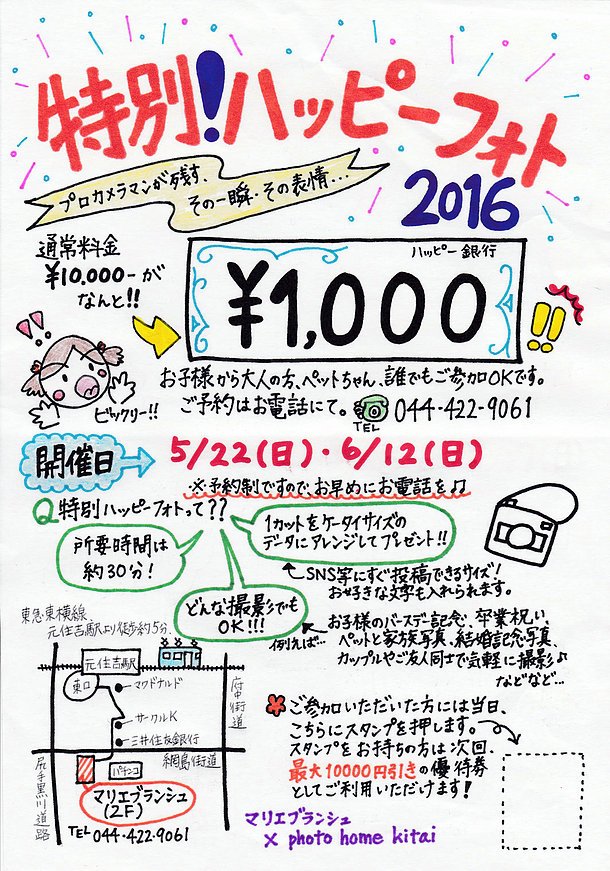 特別!ハッピーフォト
2016
プロカメラマンが残す、
その一瞬・その表情...
通常料金
¥10,000-が
なんと!!
ハッピー銀行
¥1,000
!!
!!
ビックリー!!
お子様から大人の方、ペットちゃん、誰でもご参加OKです。
ご予約はお電話にて。
TEL
044-422-9061
開催日
5/22(日)・6/12(日)
※予約制ですので、お早めにお電話を♫
Q特別ハッピーフォトって??
所要時間は
約30分!
1カットをケータイサイズの
データにアレンジしてプレゼント!!
SNS等にすぐ投稿できるサイズ!
お好きな文字も入れられます。
どんな撮影でも
OK!!!
例えば...
お子様のバースデ記念、卒業祝い、
ペットと家族写真、結婚記念写真、
カップルやご友人同士で気軽に撮影♪
などなど...
東急・東横線
元住吉駅より徒歩約5分、
元住吉駅
東口
マクドナルド
サークルK
三井住友銀行
府中街道
綱島街道
パチンコ
尻手黒川道路
マリエブランシュ
(2F)
TEL 044-422-9061
*ご参加いただいた方には当日、
こちらにスタンプを押します。
スタンプをお持ちの方は次回、
最大10000円引きの優待券
としてご利用いただけます!
マリエブランシュ
× photo home kitai